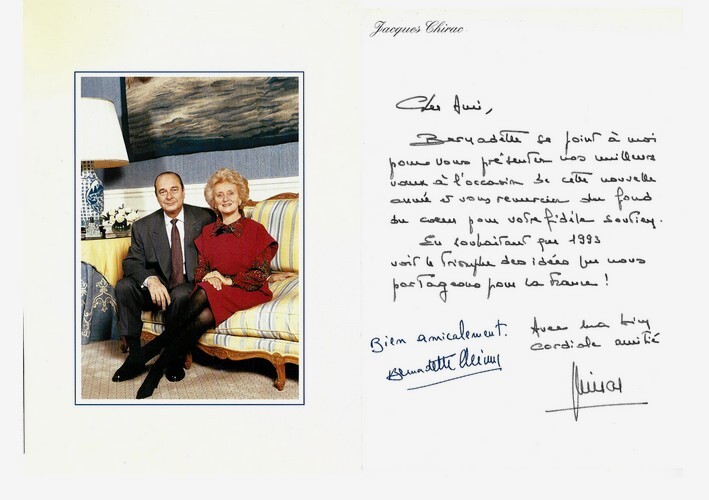 Jacques Chirac
Cher Ami,
Bernadette se joint à moi
pour vous présenter nos meilleurs
vœux à l'occasion de cette nouvelle
année et vous remercier du fond
du cœur pour votre fidèle soutien.
En souhaitant que 1993
voit le triomphe des idées que nous
partageons pour la France !
Avec ma bien
cordiale amitié
Chirac
Bien amicalement.
Bernadette Chirac